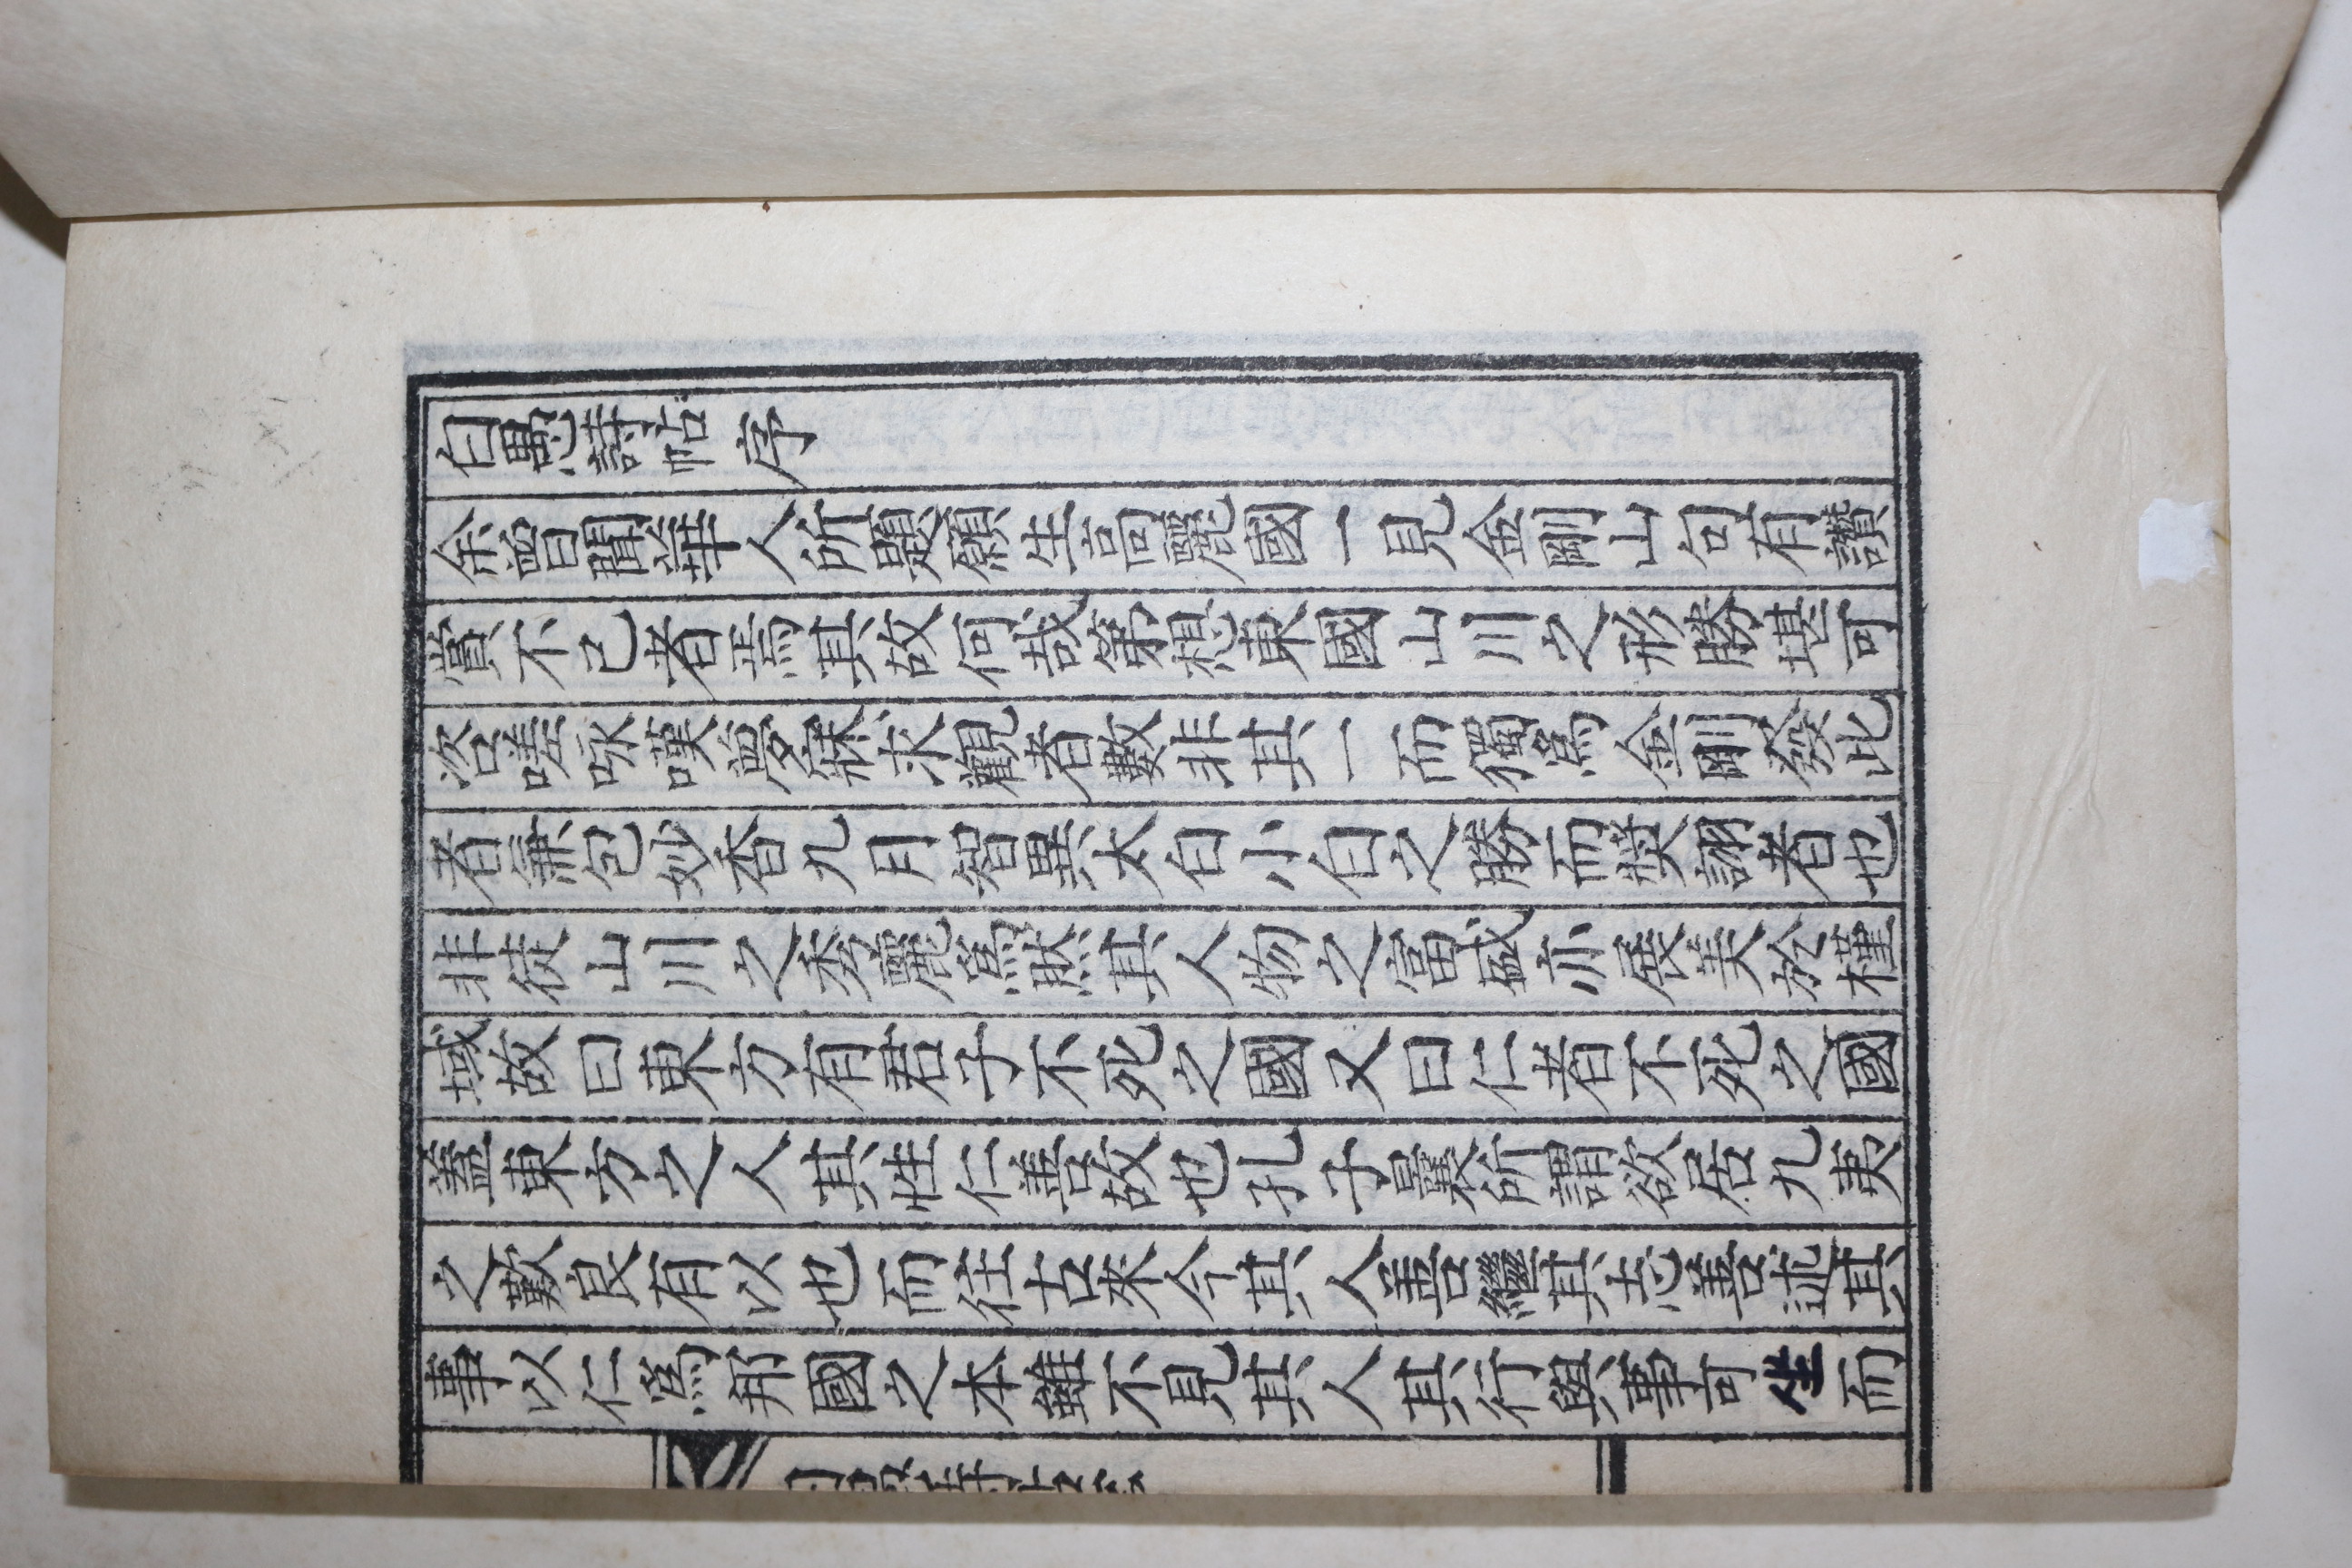 白愚詩帖序
余曾聞華人所題願生高麗國一見金剛山句有讚
賞不已者焉其故何哉第想東國山川之形勝堪可
咨嗟咏嘆夢寐求觀者數非其一而獨爲金剛發此
者兼包妙香九月智異太白小白之勝而奬詡者也
非徒山川之秀麗爲然其人物之富盛亦展美於槿
域故曰東方有君子不死之國又曰仁者不死之國
蓋東方之人其性仁善故也孔子曩所謂欲居九夷
之歎良有以也而往古來今其人善繼其志善述其
事以仁爲邦國之本雖不見其人其行與事可坐而